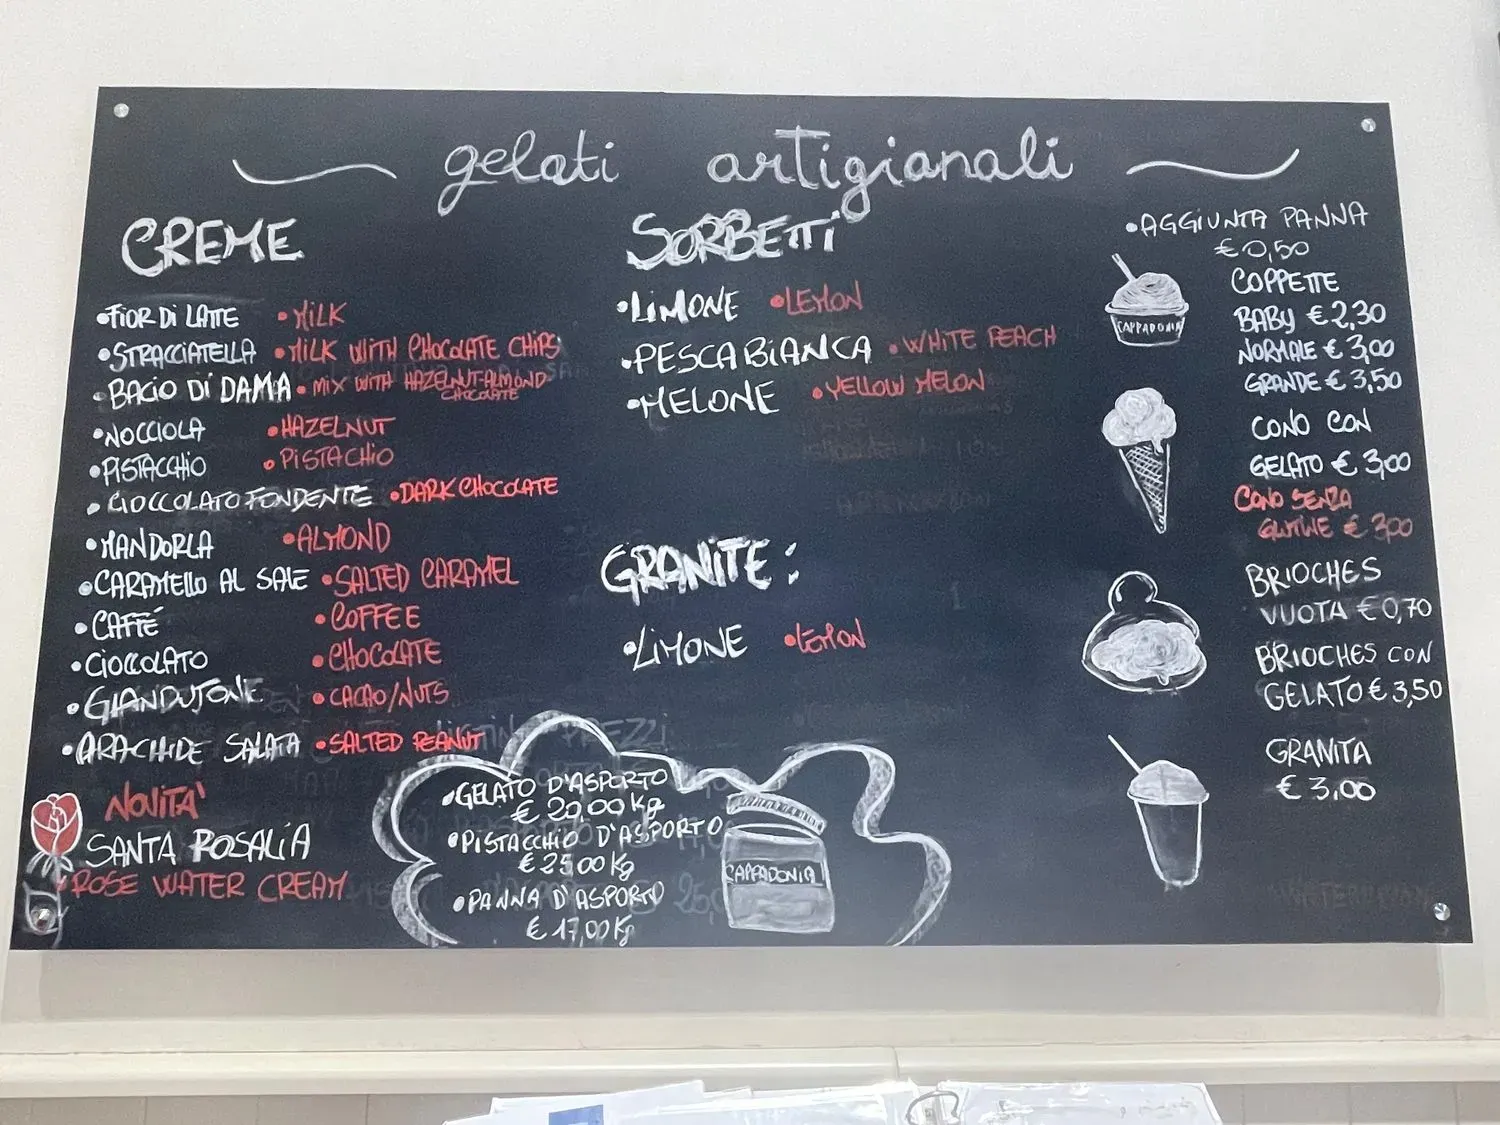 gelati artigianali
CREME
•FIOR DI LATTE •MILK
•STRACCIATELLA •MILK WITH CHOCOLATE CHIPS
•BACIO DI DAMA •MIX WITH HAZELNUT-ALMOND
CHOCOLATE
•NOCCIOLA •HAZELNUT
•PISTACCHIO •PISTACHIO
•CIOCCOLATO FONDENTE •DARK CHOCOLATE
•MANDORLA •ALMOND
•CARAMELLO AL SALE •SALTED CARAMEL
•CAFFÉ •COFFEE
•CIOCCOLATO •CHOCOLATE
•GIANDUJONE •CACAO/NUTS
•ARACHIDE SALATA •SALTED PEANUT
NOVITA'
SANTA ROSALIA
•ROSE WATER CREAM
SORBETTI
•LIMONE •LEMON
•PESCA BIANCA •WHITE PEACH
•MELONE •YELLOW MELON
GRANITE:
•LIMONE •LEMON
•GELATO D'ASPORTO
€ 20,00 Kg
•PISTACCHIO D'ASPORTO
€ 25,00 Kg
•PANNA D'ASPORTO
€ 17,00 Kg
CAPPADONIA
•AGGIUNTA PANNA
€ 0,50
CAPPADONIA
COPPETTE
BABY € 2,30
NORMALE € 3,00
GRANDE € 3,50
CONO CON
GELATO € 3,00
CONO SENZA
GLUTINE € 3,00
BRIOCHES
VUOTA € 0,70
BRIOCHES CON
GELATO € 3,50
GRANITA
€ 3,00